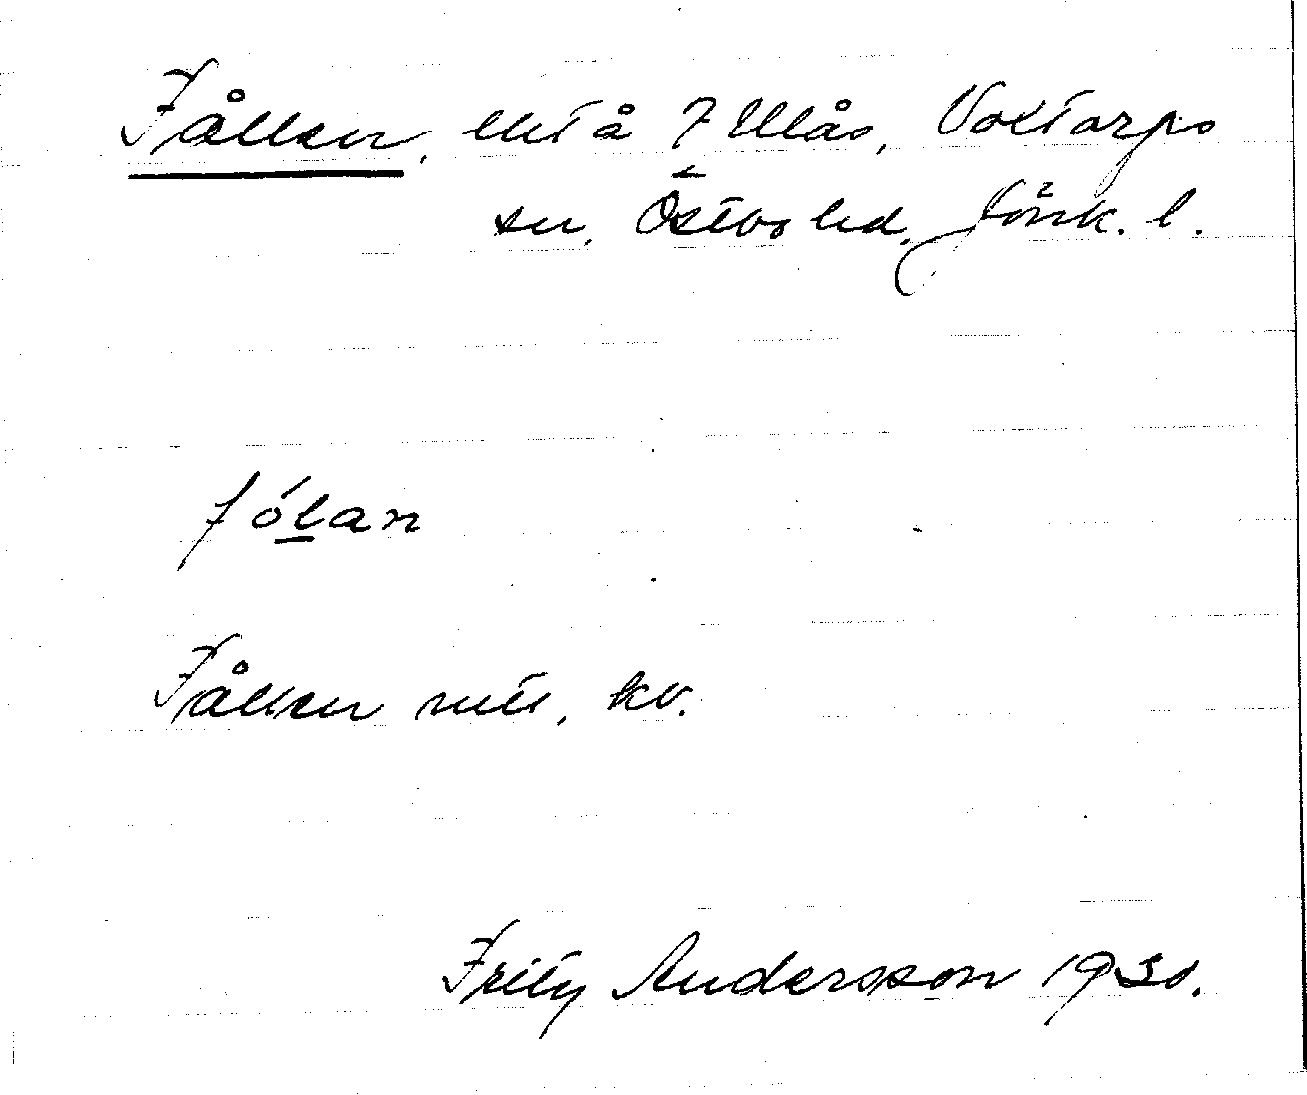 Fållen, litt å 7 Ulås, Voxtorps
sn. Östbo hd. Jönk. l.
fólan
Fållen ntr, kv.
Frity Andersson 1930.